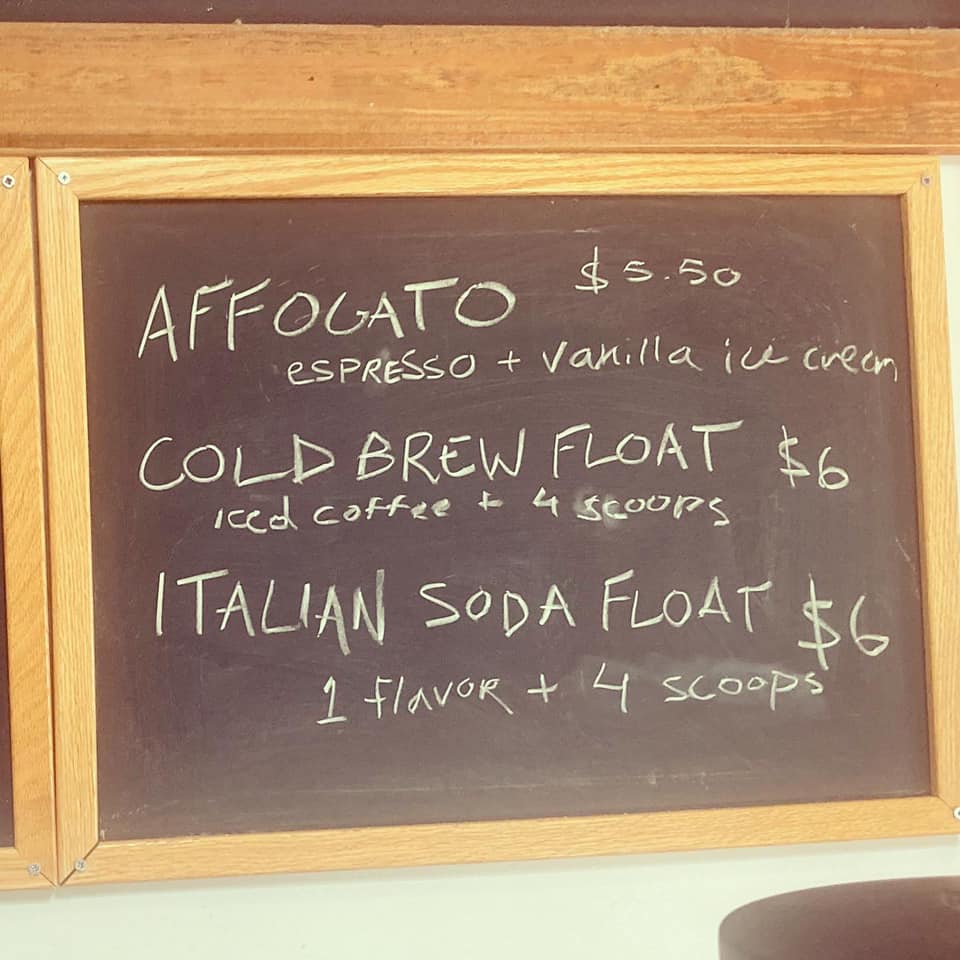 AFFOGATO $5.50
ESPRESSO + vanilla ice cream
COLD BREW FLOAT $6
iced coffee + 4 scoops
ITALIAN SODA FLOAT $6
1 flavor + 4 scoops